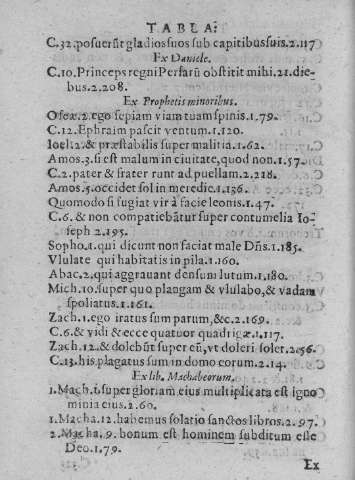 TABLA:
C.32.posuerūt gladios suos sub capitibus suis.2.117
Ex Daniele.
C.10.Princeps regni Persarū obstitit mihi.21.die-
bus.2.208.
Ex Prophetis minoribus.
Oseæ.2.ego sepiam viam tuam spinis.1.79.
C.12.Ephraim pascit ventum.1.120.
Ioel.2.& præstabilis super malitia.1.62.
Amos.3.si est malum in ciuitate,quod non.1.57.
C.2.pater & frater runt ad puellam.2.218.
Amos.5.occidet sol in meredie.1.136.
Quomodo si fugiat vir à facie leonis.1.47.
C.6.& non compatiebātur super contumelia Io-
seph 2.195.
Sopho.1.qui dicunt non faciat male Dñs.1.185.
Vlulate qui habitatis in pila.1.160.
Abac.2.qui aggrauant densum lutum.1.180.
Mich.10.super quo plangam & vlulabo,& vadam
spoliatus.1.161.
Zach.1.ego iratus sum parum,&c.2.169.
C.6.& vidi & ecce quatuor quadrigæ.1.117.
Zach.12.& dolebūt super eū,vt doleri soler.2.56.
C.13.his plagatus sum in domo eorum.2.14.
Ex lib. Machabeorum.
1.Mach.1.super gloriam eius multiplicata est igno
minia eius.2.60.
1.Macha.12.habemus solatio sanctos libros.2.97.
2.Macha.9.bonum est hominem subditum esse
Deo.1.79.
Ex